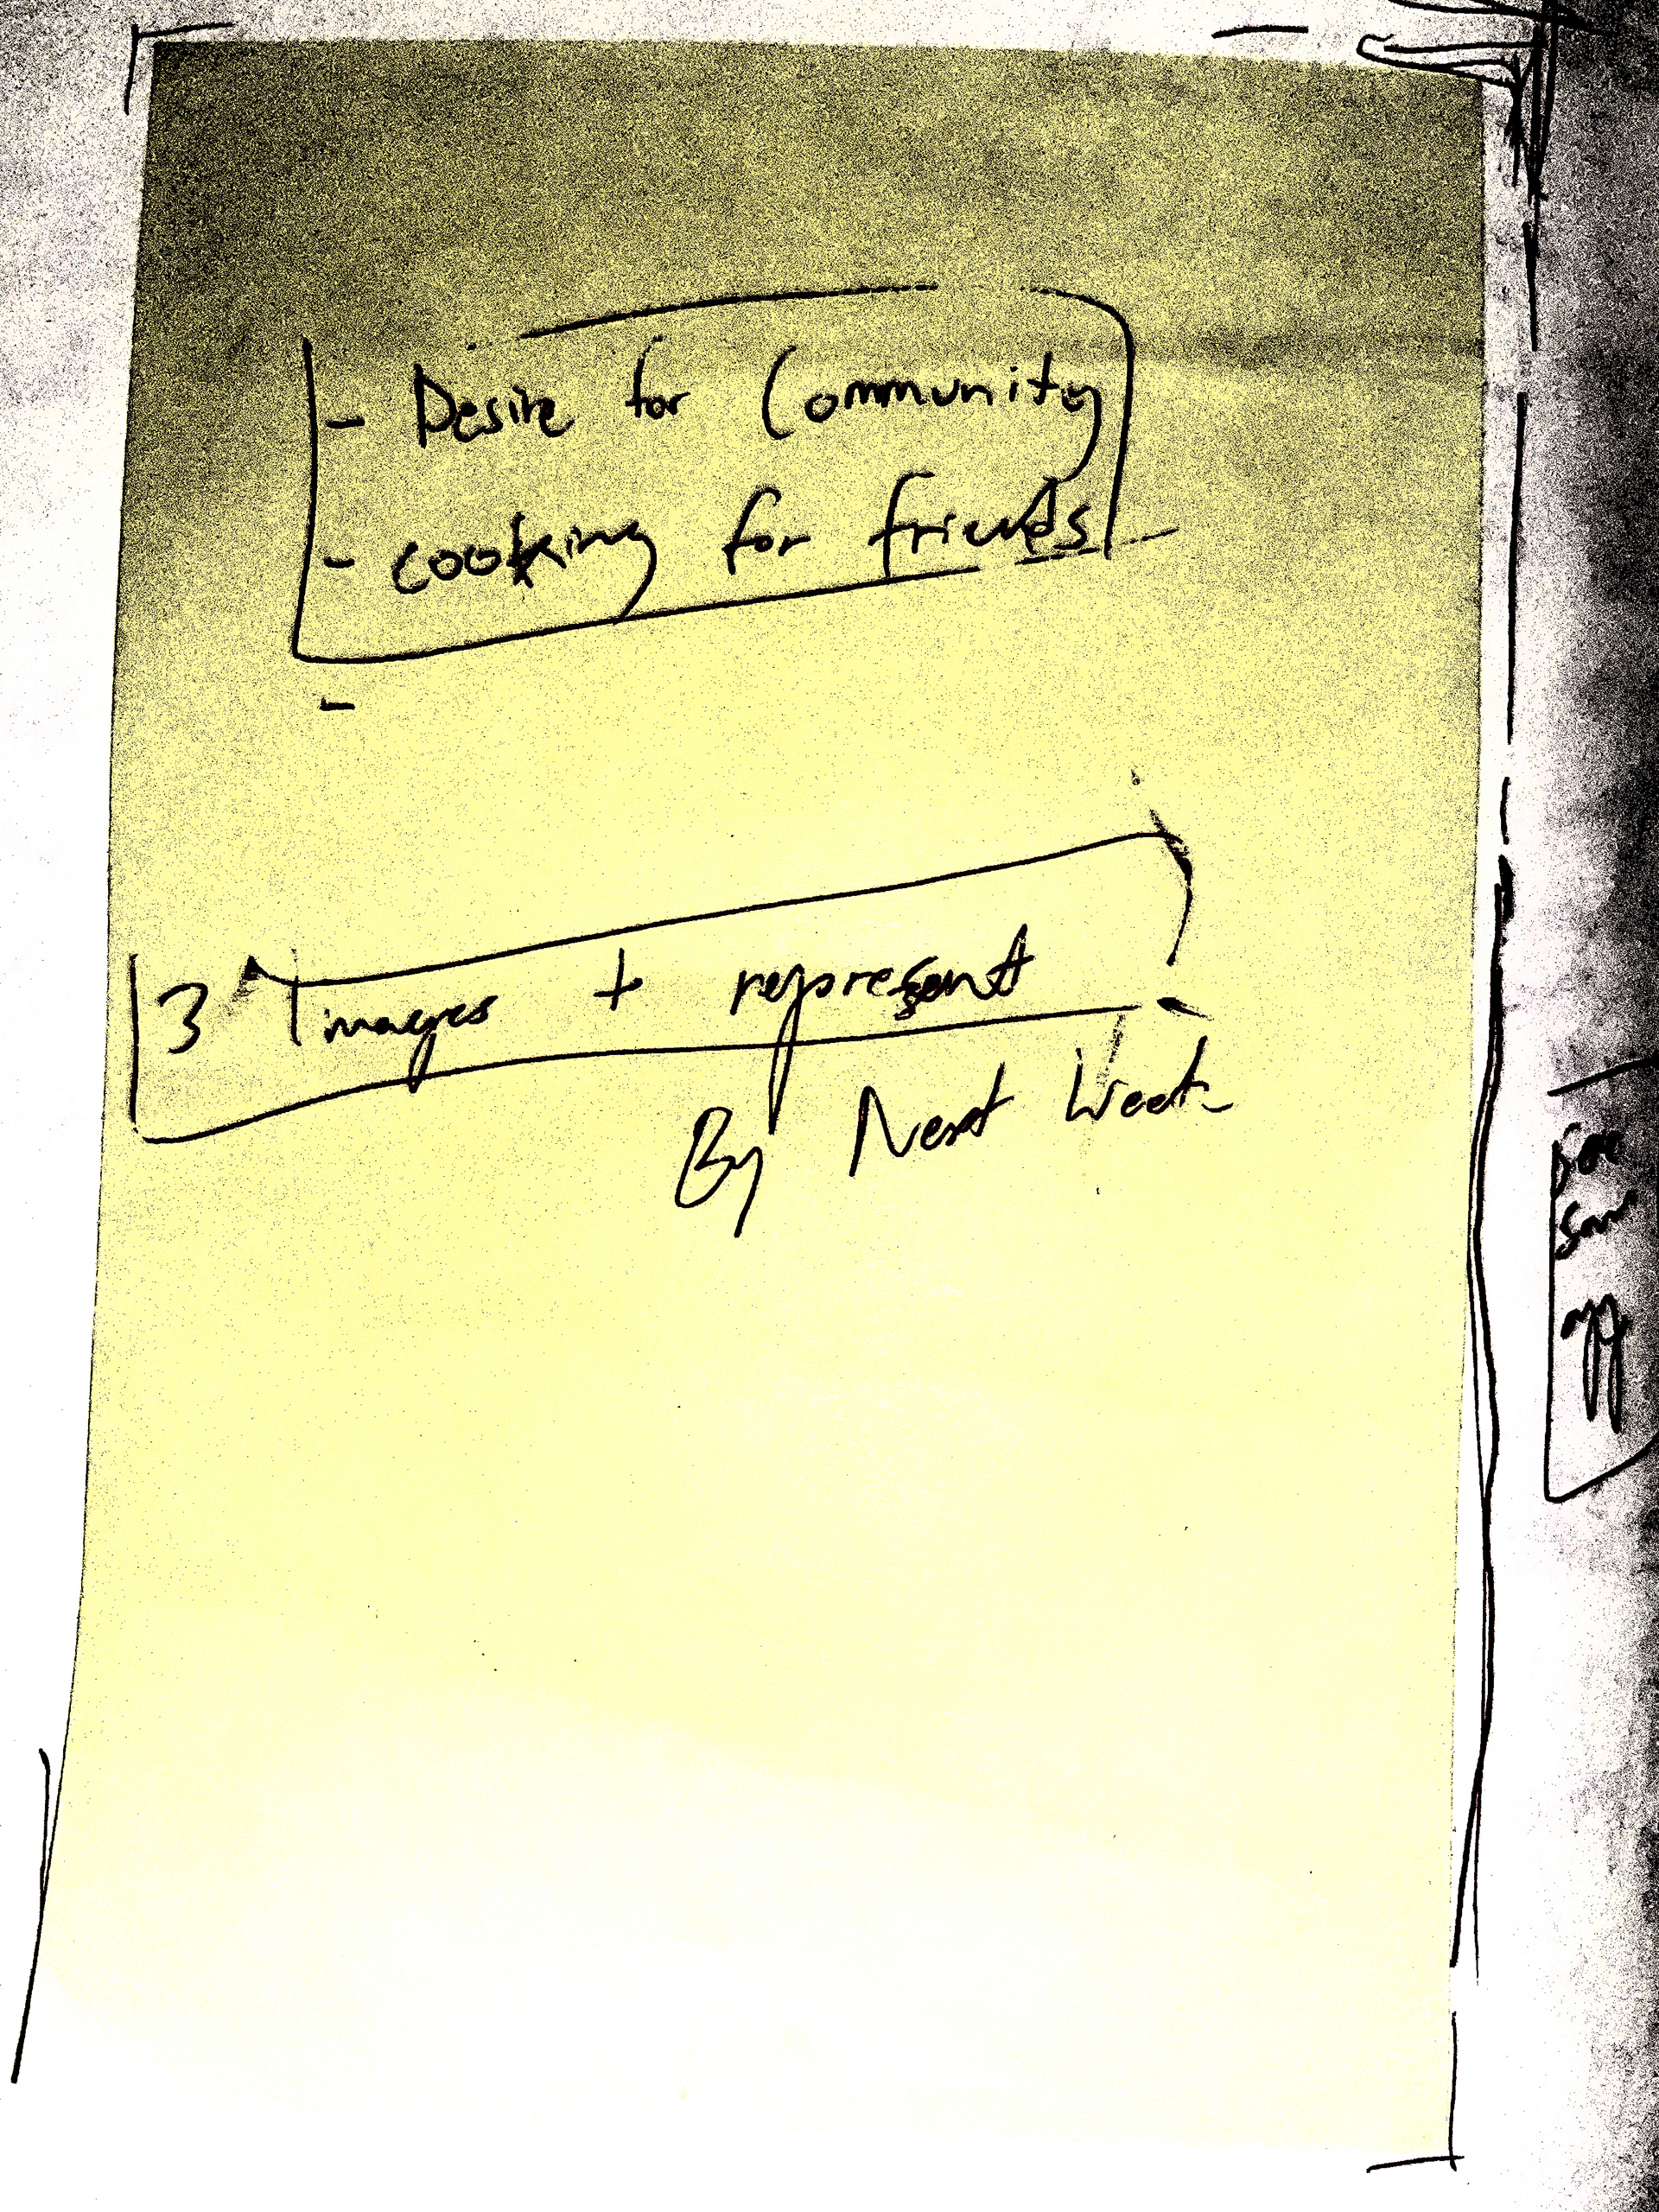 - Desire for Community
- cooking for friends
-
3 Images + represent
By Next Week